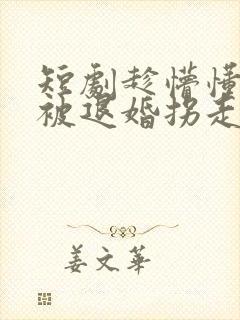 短劇趁懵懂
被退婚拐走
姜文華